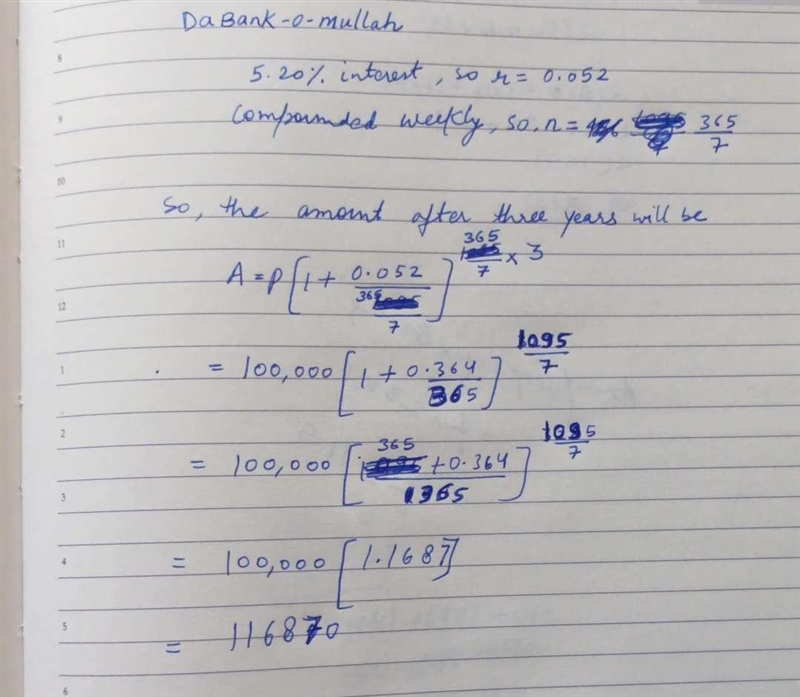 DaBank-o-mullah
5.20% interest, so r = 0.052
Compounded weekly, so, n = 365/7
So, the amount after three years will be
A = P [1 + 0.052 / (365/7)]^(365/7 × 3)
= 100,000 [1 + 0.364/365]^(1095/7)
= 100,000 [(365 + 0.364)/365]^(1095/7)
= 100,000 [1.1687]
= 116870
8
9
10
11
12
1
2
3
4
5
6